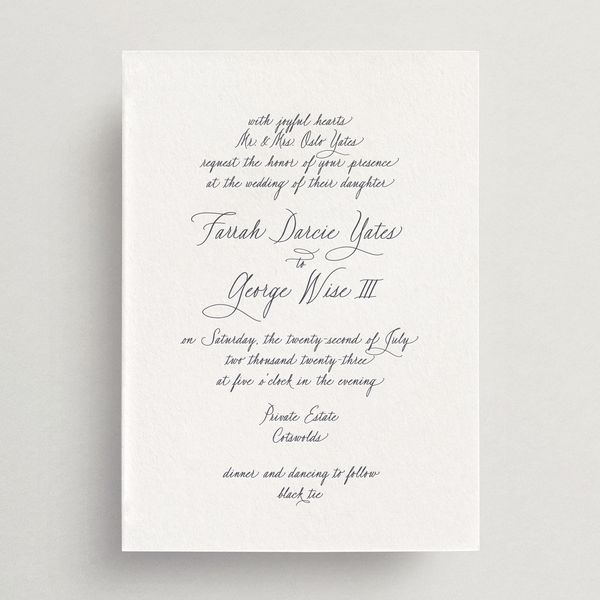 with joyful hearts
Mr. & Mrs. Oslo Yates
request the honor of your presence
at the wedding of their daughter
Farrah Darcie Yates
to
George Wise III
on Saturday, the twenty-second of July
two thousand twenty-three
at five o'clock in the evening
Private Estate
Cotswolds
dinner and dancing to follow
black tie